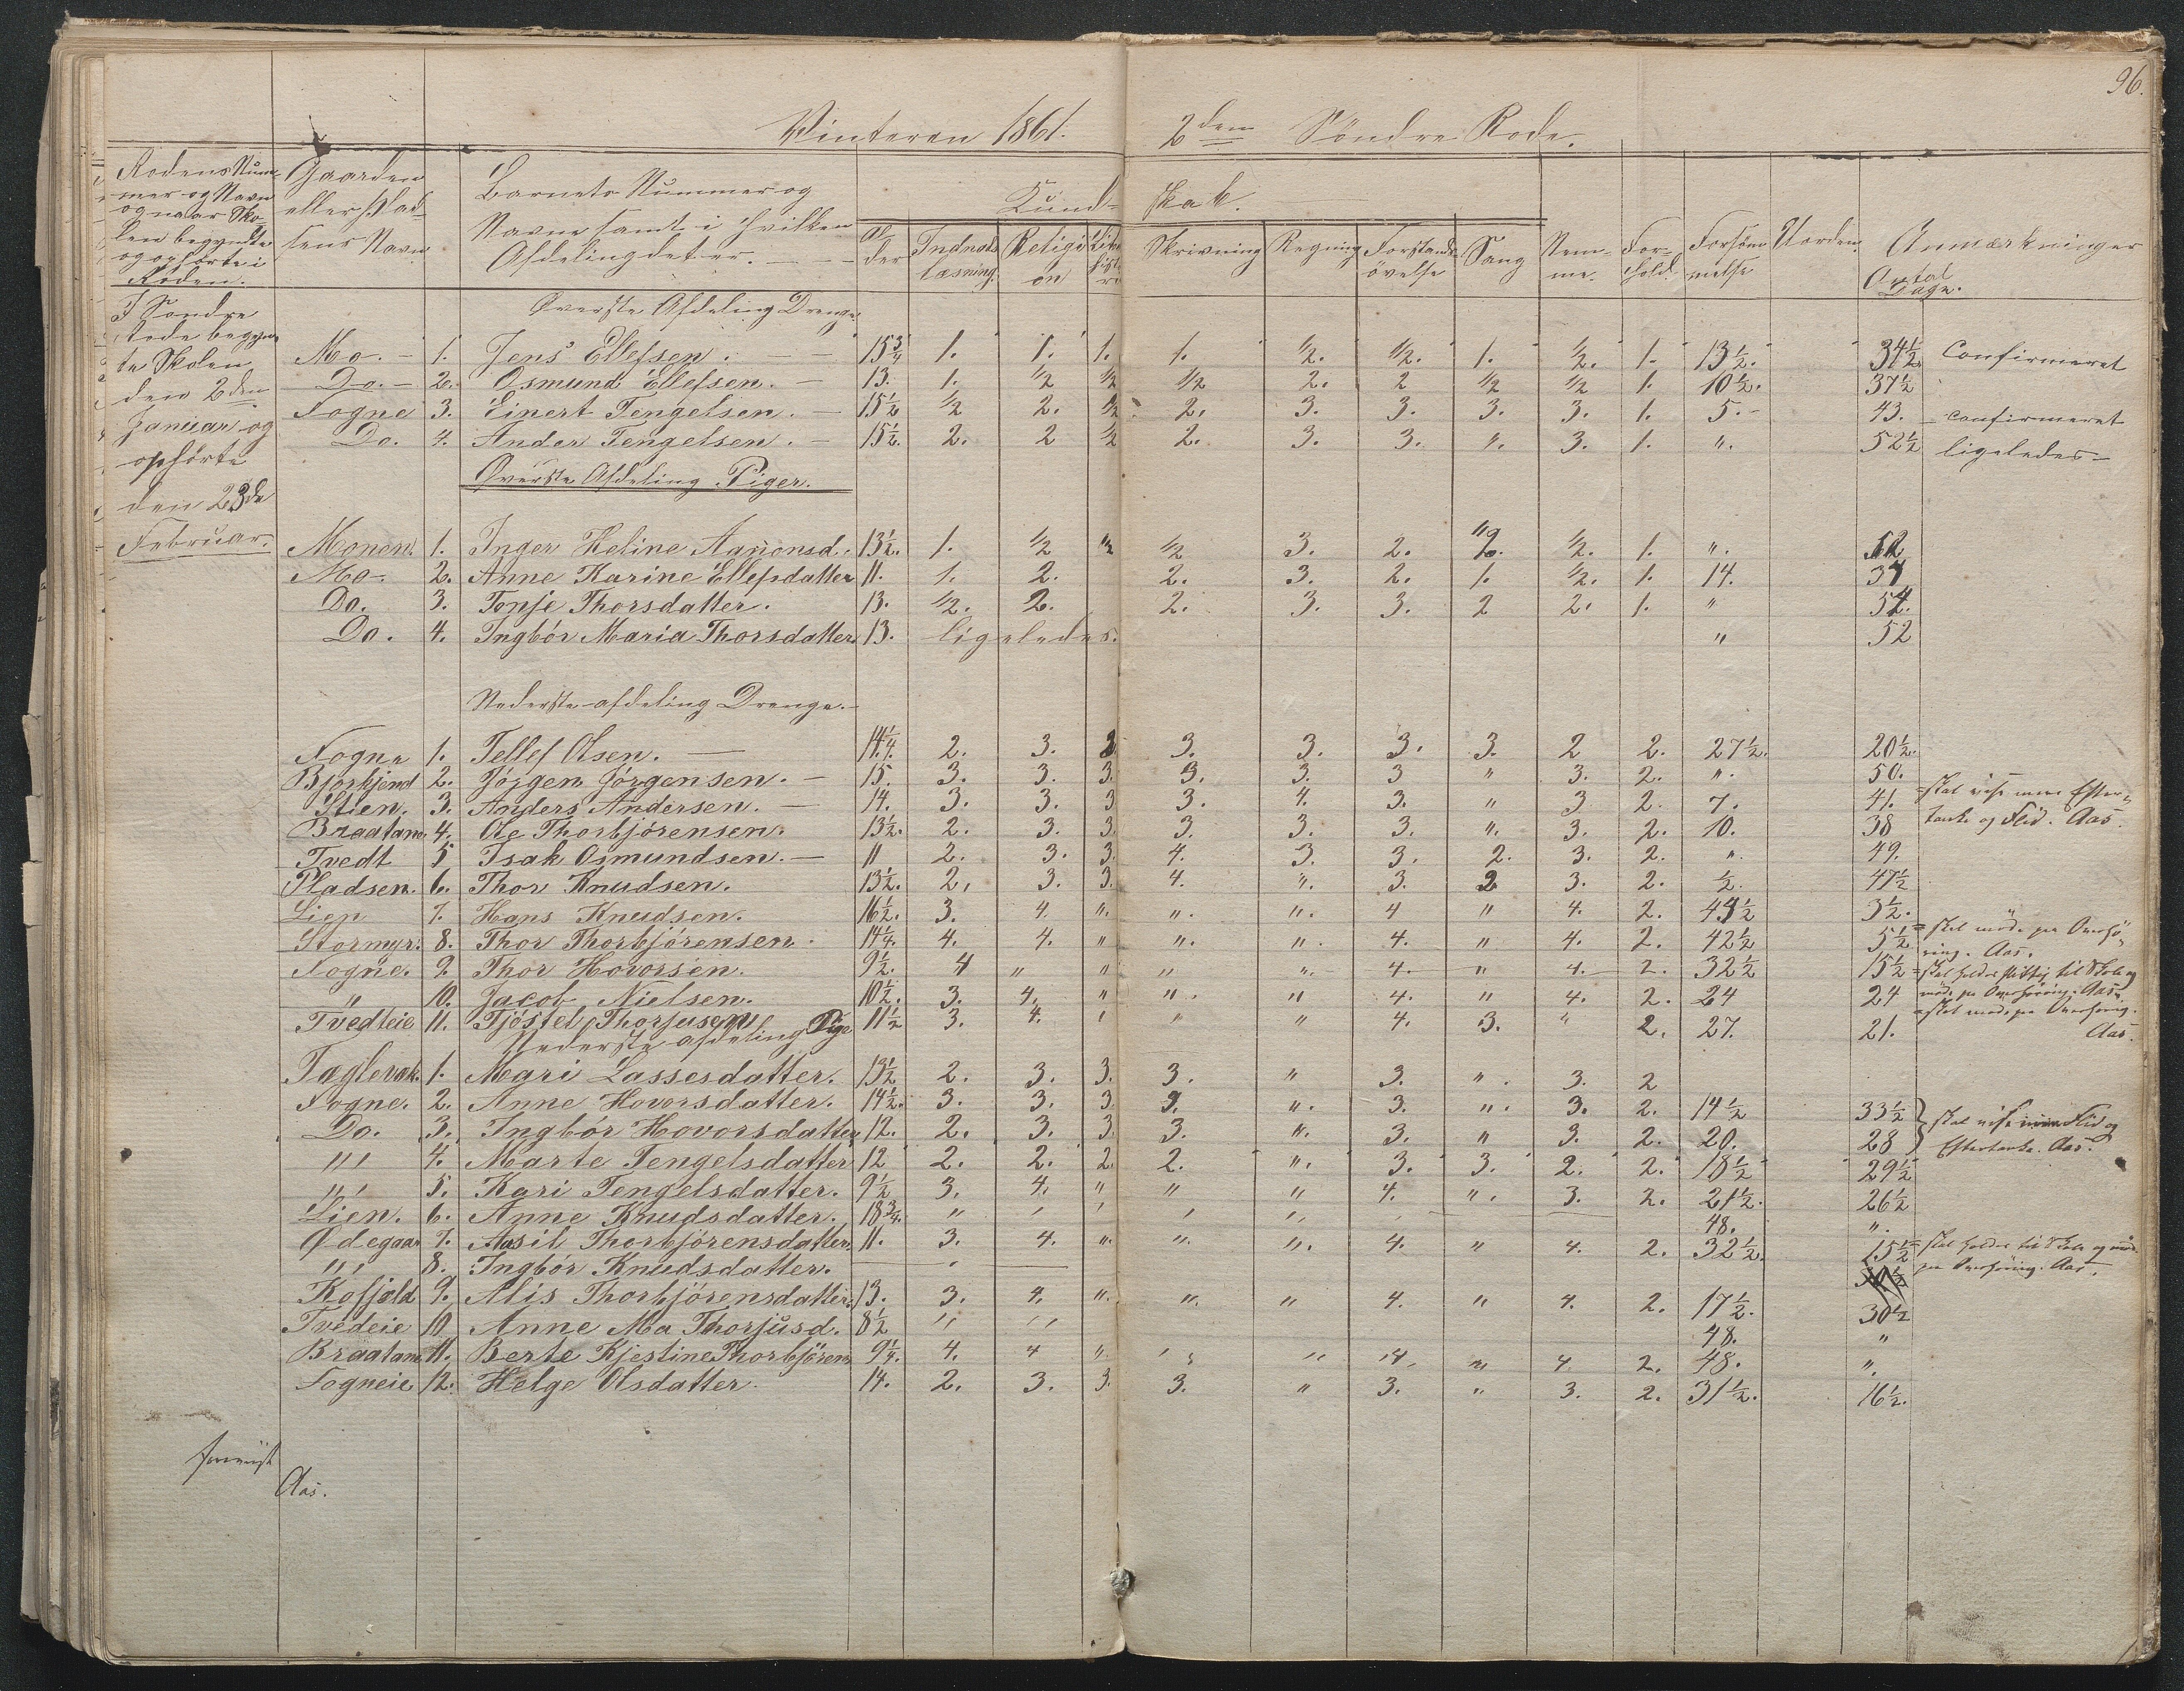 96.
Vinteren 1861. 2den Søndre Rode.
Rodens Num-
mer og Navn
og naar Sko-
len begyndte
og ophørte i
Roden.
Gaarden
eller Plad-
sens Navn
Barnets Nummer og
Navne samt i hvilken
Afdeling det er.
Kund- skab.
Al-
der
Indnads
læsning.
Religi
on
Skrivning Regning Forstands-
øvelse
Sang Stem-
me. For-
hold. Forsøm
melse Uorden. Antal
Dage. Anmærkninger
I Søndre
Rode begyn
te Skolen
den 2den
Januar og
ophørte
den 23de
Februar.
Øverste Afdeling Drenge.
Mo. - 1. Jens Ellefsen. - 15 3/4 1. 1. 1. 1. 1/2. 1/2. 1. 1/2. 1. 13 1/2. 34 1/2. Confirmeret
Do. - 2. Osmund Ellefsen. - 13. 1. 1/2 1/2 1/2 2. 2 1/2 1/2 1. 10 1/2. 37 1/2
Fogne 3. Einert Tengelsen. - 15 1/2 1/2 2. 1/2 2. 3. 3. 3. 3. 1. 5. - 43. confirmeret
Do. 4. Ander Tengelsen. - 15 1/2. 2. 2 1/2 2. 3. 3. ". 3. 1. ". 52 1/2 ligeledes -
Øverste Afdeling Piger.
Monen. 1. Inger Heline Aanonsd. 13 1/2. 1. 1/2 1/2 1/2 3. 2. 2. 1/2. 1. ". 52
Mo. 2. Anne Karine Ellefsdatter 11. 1. 2. 2. 3. 2. 1. 1/2. 1. 14. 37
Do. 3. Tonje Thorsdatter. 13. 1/2. 2. 2. 3. 3. 2 2. 1. " 52.
Do. 4. Ingbór Maria Thorsdatter 13. ligeledes. " 52
Nederste afdeling Drenge. -
Fogne 1. Tellef Olsen. - 14 1/4. 2. 3. 3 3. 3. 3. 3. 2 2. 27 1/2. 20 1/2.
Bjørkjend 2. Jørgen Jørgensen. - 15. 3. 3. 3. 3. 3. 3 " 3. 2. ". 50.
Stien. 3. Anders Andersen. - 14. 3. 3. 3 3. 4. 3. " 3 2. 7. 41. = skal vise mere Efter-
Braatane 4. Ole Thorbjørensen. 13 1/2. 2. 3. 3. 3. 3. 3. ". 3. 2. 10. 38 tanke og Flid. Aas.
Tvedt 5 Isak Osmundsen. - 11 2. 3. 3. 4. 3. 3. 2. 3. 2. ". 49.
Pladsen. 6. Thor Knudsen. 13 1/2. 2. 3. 3. 4. ". 3. 2 3. 2. 1/2. 47 1/2
Lien 7. Hans Knudsen. 16 1/2. 3. 4. ". ". ". 4 " 4. 2. 44 1/2 3 1/2.
Stormyr. 8. Thor Thorbjørensen. 14 1/4. 4. 4. " ". ". 4. " 4. 2. 42 1/2 5 1/2 = skal møde paa Overhø-
ring. Aas.
Fogne. 9. Thor Hovorsen. 9 1/2. 4 " " " ". 4. " 4. 2. 32 1/2 15 1/2 = skal holdes flittig til Skole og
" 10. Jacob Nielsen. 10 1/2. 3. 4. " ". " 4. " 4. 2. 24 24 møde paa Overhøring. Aas.
Tvedteie 11. Tjöstel Thorjusen 11 1/2 3. 4. " " " 4. 3. " 2. 27. 21. = skal møde paa Overhøring.
Aas.
Nederste afdeling Pige
Taglevak. 1. Mari Lassesdatter. 13 1/2 2. 3. 3. 3. " 3. ". 3. 2
Fogne. 2. Anne Hovorsdatter. 14 1/2. 3. 3. 3. 3. ". 3. ". 3. 2. 14 1/2 33 1/2 skal vise Flid og
Do. 3. Ingbor Hovorsdatter 12. 2. 3. 3 3. ". 3. " 3. 2. 20. 28 Eftertanke. Aas.
" 4. Marte Tengelsdatter 12 2. 2. 2 2. ". 3. 3. 2. 2. 18 1/2 29 1/2
" 5. Kari Tengelsdatter. 9 1/2 3. 4. " " " 4. ". 3. 2. 21 1/2. 26 1/2
Lien. 6. Anne Knudsdatter. 18 3/4. " 48. ".
Ødegaar 7. Aasil Thorbjörensdatter. 11. 3. 4. ". ". ". 4. " 4. 2. 32 1/2. 15 1/2 = skal holdes til Skole og møde
" 8. Ingbór Knudsdatter. paa Overhøring. Aas.
Kosfjeld 9. Alis Thorbjörensdatter. 13. 3. 4. ". ". " 4. " 4. 2. 17 1/2. 30 1/2
Tvedeie 10 Anne Ma Thorjusd. 8 1/2 " " 48. "
Braatane 11. Berte Kjestine Thorbjörens 9 1/4. 4. 4 ". " " 4. " 4. 2. 48. ".
Fogneie 12. Helge Olsdatter. 14. 2. 3. 3. 3. " 3. " 3. 2. 31 1/2. 16 1/2.
Aas.